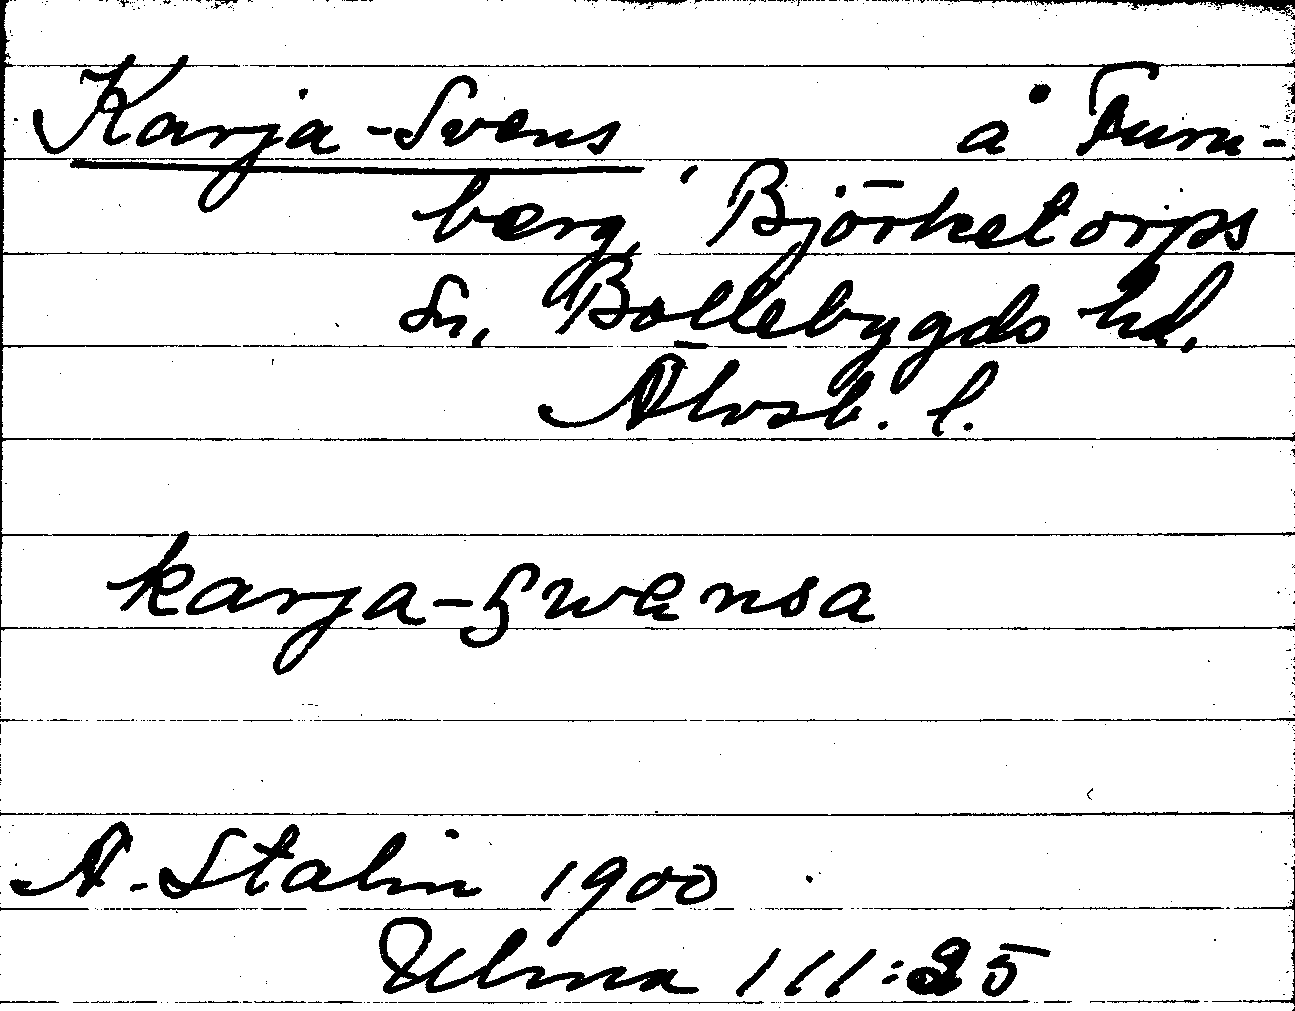 Karja-Svens å Furu-
berg, Björketorps
sn, Bollebygds hd,
Älvsb. l.
karja-swensa
A. Stalin 1900
Ulma 111:25